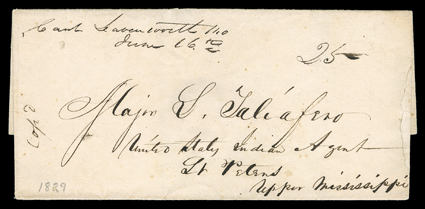 Cant Leavenworth Mo
June 16
25
Major L. Taliafero
United States Indian Agent
St Peters
Upper Mississippi
1829